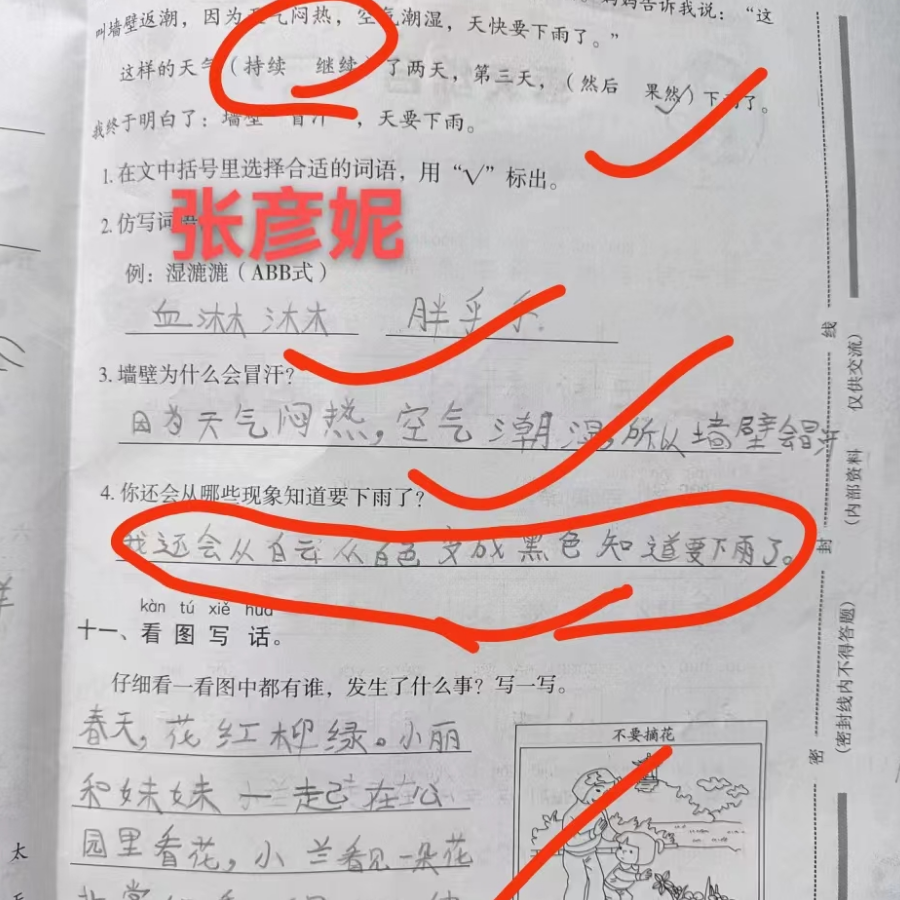 妈妈告诉我说：“这
叫墙壁返潮，因为天气闷热，空气潮湿，天快要下雨了。”
这样的天气（持续 继续）了两天，第三天，（然后 果然√）下雨了。
我终于明白了：墙壁“冒汗”，天要下雨。
1.在文中括号里选择合适的词语，用“√”标出。
2.仿写词语。
张彦妮
例：湿漉漉（ABB式）
血淋淋 胖乎乎
3.墙壁为什么会冒汗？
因为天气闷热，空气潮湿，所以墙壁会冒汗
4.你还会从哪些现象知道要下雨了？
我还会从白云从白色变成黑色知道要下雨了。
kàn tú xiě huà
十一、看图写话。
仔细看一看图中都有谁，发生了什么事？写一写。
春天，花红柳绿。小丽
和妹妹一起在公
园里看花，小兰看见一朵花
不要摘花
线
封
密
（内部资料 仅供交流）
（密封线内不得答题）
太